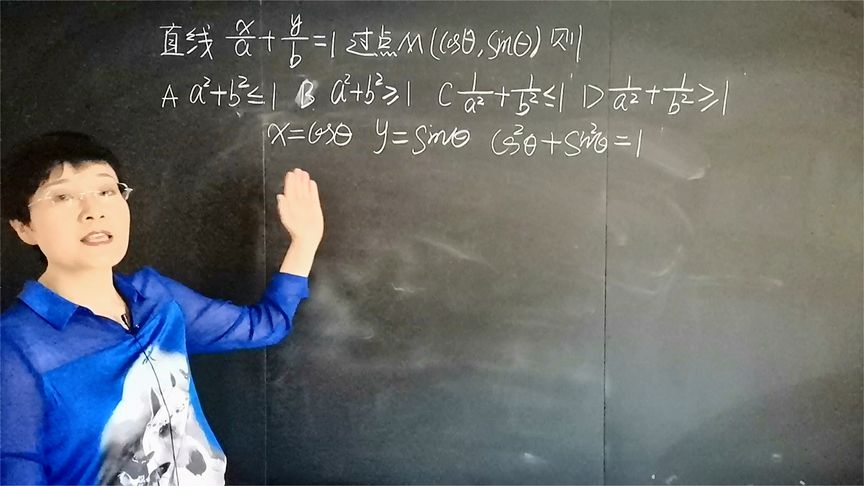 直线 x/a + y/b = 1 过点M(cosθ, sinθ) 则
A a²+b²≤1 B a²+b²≥1 C 1/a²+1/b²≤1 D 1/a²+1/b²≥1
x=cosθ y=sinθ cos²θ+sin²θ=1